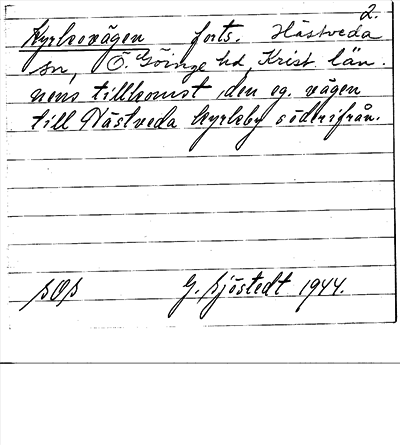 2.
Kyrkovägen forts. Hästveda
sn, Ö. Göinge hd, Krist. län.
nens tillkomst, den eg. vägen
till Hästveda kyrkby söderifrån.
G. Sjöstedt 1944.